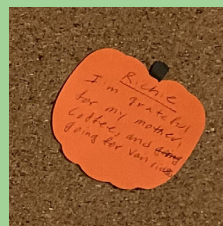 Richie
I'm grateful
for my mother,
coffee, and
going for van